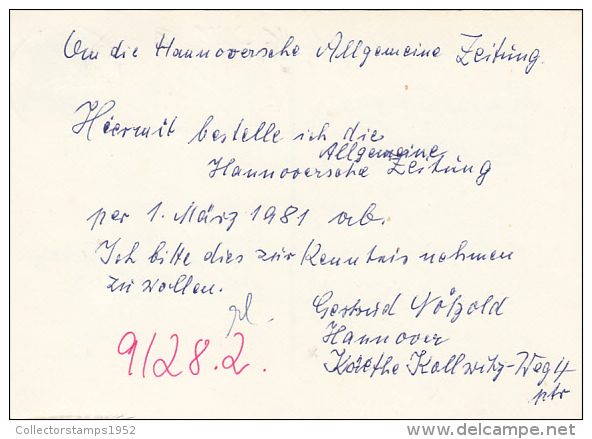 An die Hannoversche Allgemeine Zeitung.
Hiermit bestelle ich die
Allgemeine
Hannoversche Zeitung
per 1. März 1981 ab.
Ich bitte dies zur Kenntnis nehmen
zu wollen.
Gertrud
Hannover
Käethe Kollwitz-Weg 4
9/28.2.
Collectorstamps1952
delcampe.net